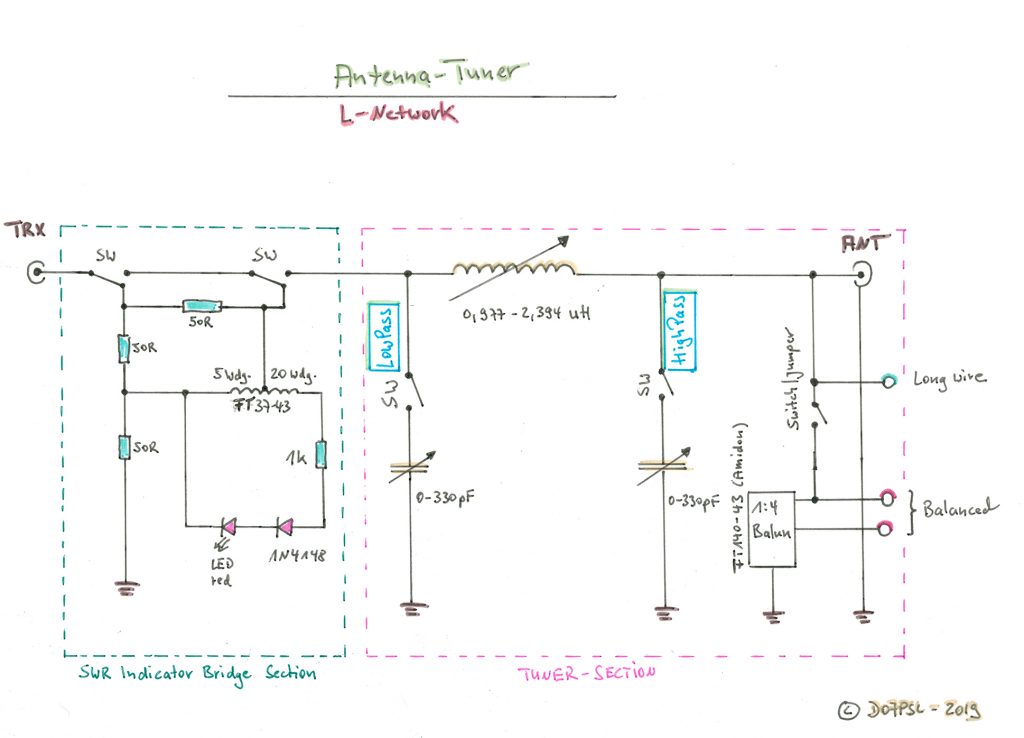 Antenna-Tuner
L-Network
TRX
SW
SW
ANT
50R
50R
5 Wdg. 20 Wdg.
FT37-43
50R
1k
LED
red
1N4148
LowPass
0,977-2,394 uH
HighPass
SW
SW
0-330pF
0-330pF
Switch/Jumper
Long wire
FT140-43 (Amidon)
1:4
Balun
Balanced
SWR Indicator Bridge Section
TUNER-SECTION
© DO7PSL - 2019